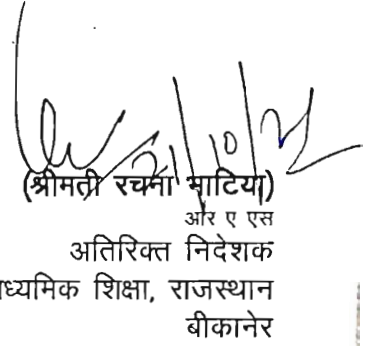 21/10/25
(श्रीमती रचना भाटिया)
आर ए एस
अतिरिक्त निदेशक
ध्यमिक शिक्षा, राजस्थान
बीकानेर